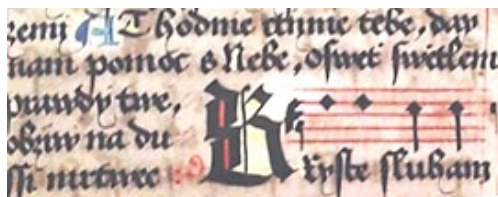 zemi A Thodnie ctinie tebe, day
nam pomoc s Nebe, oswet swetlem
prawdy twe,
obziw na du
ssi mrtwee
K ryste sluham